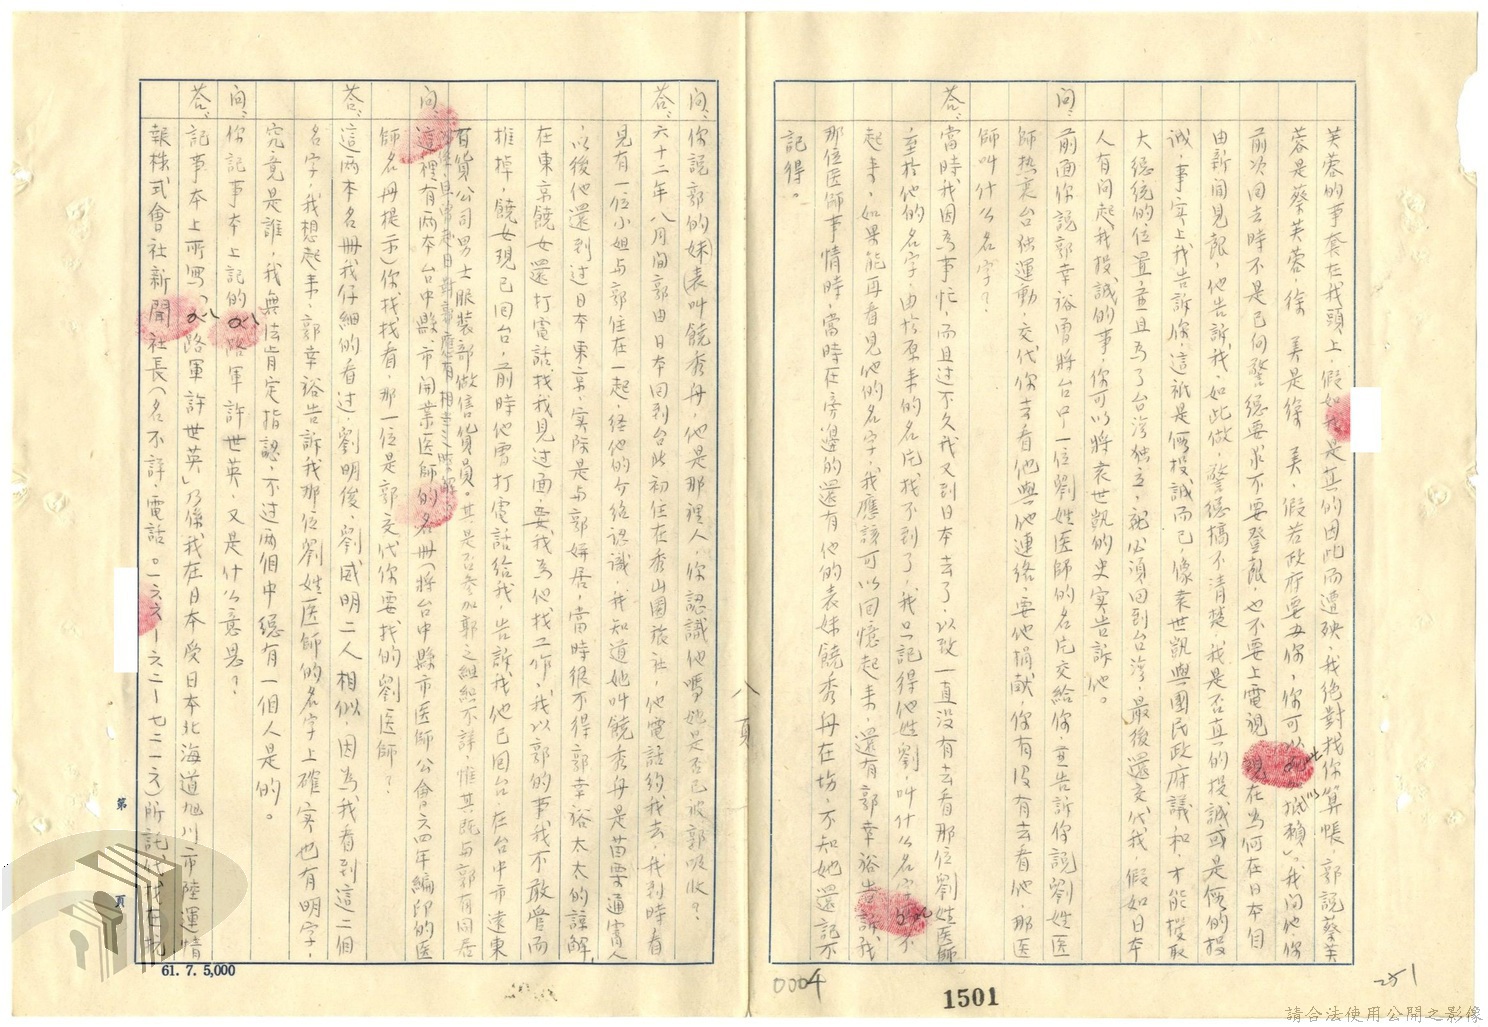 芙蓉的事套在我頭上，假如我是真的因此而遭殃，我絕對找你算帳，郭說蔡芙
蓉是蔡芙蓉，徐美是徐美，假若政府要办你，你可以抵賴」，我问他你
前次回去時不是已向警總要求不要登報，也不要上電視，現在為何在日本自
由新聞見報，他告訴我，如此做，警總搞不清楚，我是否真的投誠或是假的投
誠，事实上我告訴你，這祇是假投誠而已，像袁世凱與國民政府議和，才能獲取
大總統的位置，並且為了台灣独立，郭必須回到台灣，最後還交代我，假如日本
人有问起我投誠的事，你可以將袁世凱的史实告訴他。
问：前面你說郭幸裕曾將台中一位劉姓医師的名片交給你，並告訴你說劉姓医
師热衷台独運動，交代你去看他與他連絡，要他捐献，你有没有去看他，那医
師叫什么名字？
答：當時我因為事忙，而且过不久我又到日本去了，以致一直没有去看那位劉姓医師
至於他的名字，由於原来的名片找不到了，我只記得他姓劉，叫什么名字
起来，如果能再看見他的名字，我應該可以回憶起来，還有郭幸裕告訴我
那位医師事情時，當時在旁邊的還有他的表妹饒秀丹在場，不知她還記不
記得。
0004
1501
251
八頁
问：你說郭的妹（表）叫饒秀丹，他是那裡人，你認識他嗎她是否已被郭吸收？
答：六十二年八月间郭由日本回到台北初住在秀山園旅社，他電話約我去，我到時看
見有一位小姐与郭住在一起，经他的介绍認識，我知道她叫饒秀丹是苗栗通霄人
以後他還到过日本東京，实際是与郭姘居，當時很不得郭幸裕太太的諒解，
在東京饒女還打電話找我見过面，要我為他找工作，我以郭的事我不敢管而
推掉，饒女現已回台，前時他曾打電話給我，告訴我他已回台，在台中市遠東
百貨公司男士服装部做信貨員。其是否参加郭之組織不詳，惟其既与郭有同居
问：這裡有两本台中縣、市開業医師的名冊（將台中縣市医師公會六四年編印的医
師名冊提示）你找找看，那一位是郭交代你要找的劉医師？
答：這两本名冊我仔細的看过，劉明俊，劉威明二人相似，因為我看到這二個
名字，我想起来，郭幸裕告訴我那位劉姓医師的名字上確实也有明字，
究竟是誰，我無法肯定指認，不过两個中總有一個人是的。
问：你記事本上記的以路軍許世英，又是什么意思？
答：記事本上所写「以路軍許世英」乃係我在日本受日本北海道旭川市陸運情
報株式會社新聞社長（名不詳，電話。一六六－六二－七二一六）所託代找在抗
第　頁
61. 7. 5,000
請合法使用公開之影像